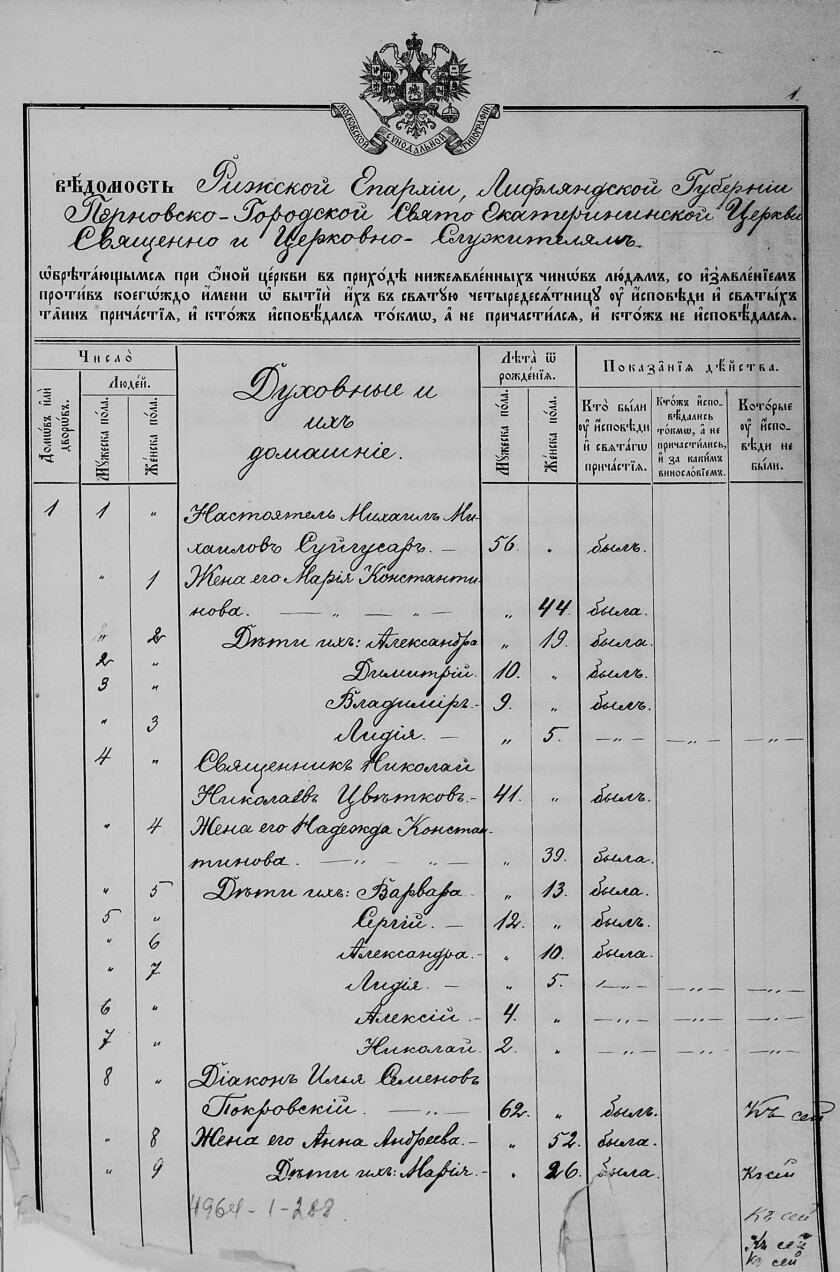 1.
МОСКОВСКОЙ СѴНОДАЛЬНОЙ ТИПОГРАФІИ
ВѢДОМОСТЬ Рижской Епархіи, Лифляндской Губерніи
Перновско-Городской Свято Екатерининской Церкви
Священно и Церковно-Служителямъ.
ѡбрѣта́ющымсѧ при ѻ́ной це́ркви въ прихо́дѣ нижеѧвле́нныхъ чинѡ́въ лю́демъ, со и҆зѧвле́нїемъ
про́тивъ коегѡ́ждо и҆́мени ѡ҆ бытїѝ и҆́хъ въ свѧту́ю четыредесѧ́тницу ᲂу҆ и҆сповѣ́ди и҆ свѧты́хъ
та́инъ прича́стїѧ, и҆ кто́жъ и҆сповѣ́далсѧ то́кмѡ, а҆ не причасти́лсѧ, и҆ кто́жъ не и҆сповѣ́далсѧ.
Число̀
Домѡ́въ и҆лѝ дворѡ́въ.
Люде́й.
Мꙋ́жеска по́ла.
Же́нска по́ла.
Духовные и
ихъ
домашніе.
Лѣ́та ѿ рожде́нїѧ.
Мꙋ́жеска по́ла.
Же́нска по́ла.
Показа̑нїѧ дѣ́йства.
Кто̀ бы́ли ᲂу҆ и҆сповѣ́ди и҆ свѧта́гѡ прича́стїѧ.
Кто́жъ и҆сповѣ́дались то́кмѡ, а҆ не причасти́лись, и҆ за каки́мъ виносло́вїемъ.
Кото́рые ᲂу҆ и҆сповѣ́ди не бы́ли.
1 1 " Настоятель Михаилъ Ми-
хаиловъ Суйгусаръ. — 56. " былъ.
" 1 Жена его Марія Константи-
нова. — " — " — " 44. была.
" 2 Дѣти ихъ: Александра " 19. была.
2 " Димитрій. 10. " былъ.
3 " Владиміръ. - 9. " былъ.
" 3 Лидія. — " 5. — " — — " — — " —
4 " Священникъ Николай
Николаевъ Цвѣтковъ. - 41. " былъ.
" 4 Жена его Надежда Констан-
тинова. — " — " — " 39. была.
" 5 Дѣти ихъ: Варвара. " 13. была.
5 " Сергій. — 12. " былъ.
" 6 Александра. - " 10. была.
" 7 Лидія. — " 5. — " — — " — — " —
6 " Алексій. - 4. " — " — — " — — " —
7 " Николай. 2. " — " — — " — — " —
8 " Діаконъ Илья Семеновъ
Покровскій. — " — 62. " былъ. Къ сей
" 8 Жена его Анна Андреева. - " 52. была.
" 9 Дѣти ихъ: Марія. - " 26. была. Къ сей
4964-1-288
Къ сей
Къ сей
Къ сей